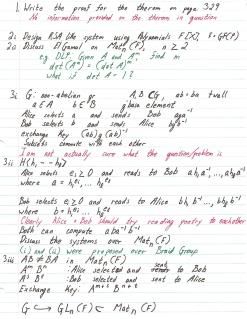 1. Write the proof for the theorem on page 329
No information provided on the theorem in question
2i Design RSA like system using Polynomials F[x], F=GF(p)
2ii Discuss ElGamal on Mat_n(F), n ≥ 2
eg DLP. Given A and A^m. Find m
det(A^m) = (det A)^m
what if det A = 1?
3i G: non-abelian gr A, B ≤ G, ab = ba twall
a ∈ A b ∈ B g base element
Alice selects a and sends Bob aga^-1
Bob selects b and sends Alice bgb^-1
exchange key (ab)g(ab)^-1
Subsets compute with each other
I am not actually sure what the question/problem is
3ii H(h, ... hg)
Alice selects e_i ≥ 0 and reads to Bob ah_1a^-1, ..., ah_ga^-1
where a = h_1^e_1, ... h_g^e_g
Bob selects e_i ≥ 0 and reads to Alice bh_1b^-1, ..., bh_gb^-1
where b = h_1^e_1, ... h_g^e_g
Clearly Alice + Bob should try reading poetry to eachother
Both can compute aba^-1b^-1
Discuss the systems over Mat_n(F)
(i) and (ii) were proposed over Braid Group
3iii AB ≠ BA in Mat_n(F)
A^m B^n : Alice selected and sent to Bob
A^s B^t : Bob selected and sent to Alice
Exchange Key: A^m+s B^n+t
G ↪ GLn(F) ⊂ Mat_n(F)